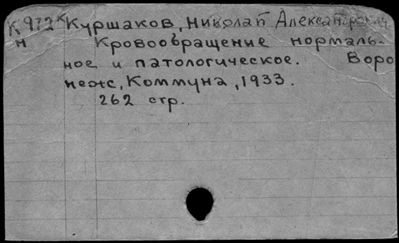 К 972 к Куршаков, Николай Александрович
н Кровообращение нормаль-
ное и патологическое. Воро
неж, Коммуна, 1933.
262 стр.